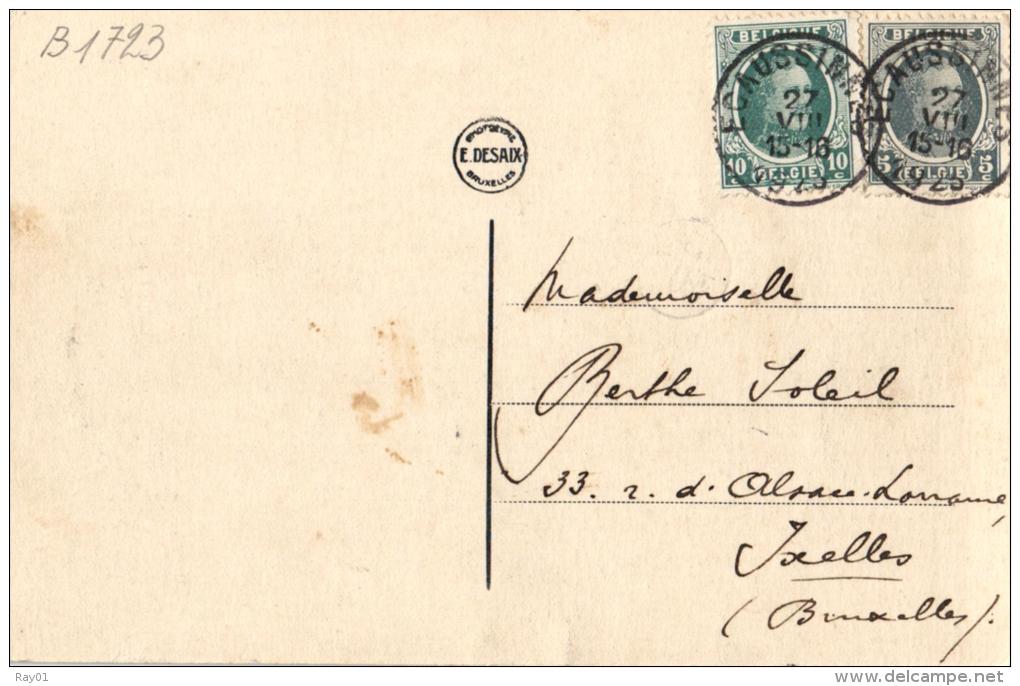 B1723
BELGIQUE
BELGIQUE
ECAUSSINNES
27
VIII
15-16
1925
ECAUSSINNES
27
VIII
15-16
1925
10 c BELGIË 10 c
5 c BELGIË 5 c
E. DESAIX
BRUXELLES
Mademoiselle
Berthe Soleil
33. r. d'Alsace-Lorraine,
Ixelles
(Bruxelles).
Ray01
delcampe.net